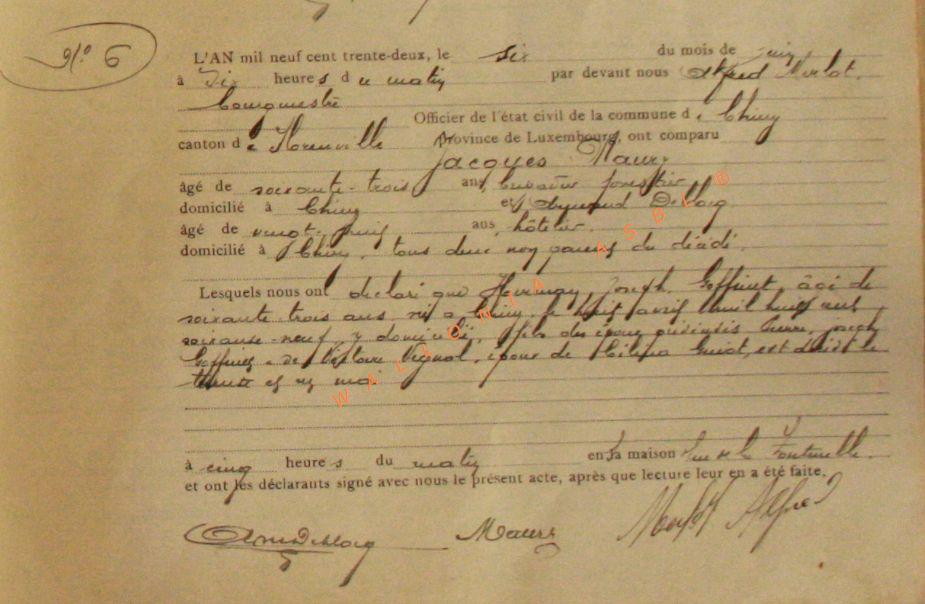 N° 6
L'AN mil neuf cent trente-deux, le six du mois de juin
à dix heures du matin par devant nous Alfred Merlot,
Bourgmestre
Officier de l'état civil de la commune de Chiny
canton de Florenville province de Luxembourg, ont comparu
Jacques Maury
âgé de soixante-trois ans, forestier
domicilié à Chiny et Armand Deblocq
âgé de vingt- ans, hôtelier.
domicilié à Chiny, tous deux non parents du décédé.
Lesquels nous ont déclaré que Joseph Goffinet, âgé de
soixante trois ans, né à Chiny le huit avril mil huit cent
soixante-neuf, y domicilié, fils des époux Pierre, Joseph
Goffinet & de Vignol, époux de Guiot, est décédé le
trente et un mai
à cinq heures du matin en sa maison Rue de la Fontenelle.
et ont les déclarants signé avec nous le présent acte, après que lecture leur en a été faite.
ArmDeblocq Maury Merlot Alfred
WALLONIA ASBL ©